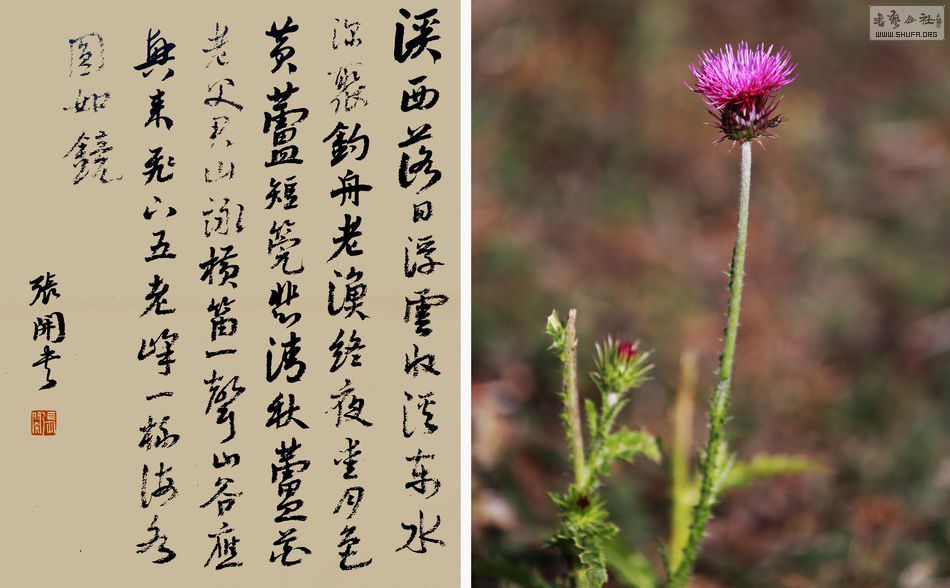 溪西落日浮雲收溪東水
深繫釣舟老漁終夜愛月色
黃蘆短篷悲清秋蘆花
老父君山詠橫笛一聲山谷應
興來飛下五老峰一
圓如鏡
張開書
書藝公社
WWW.SHUFA.ORG